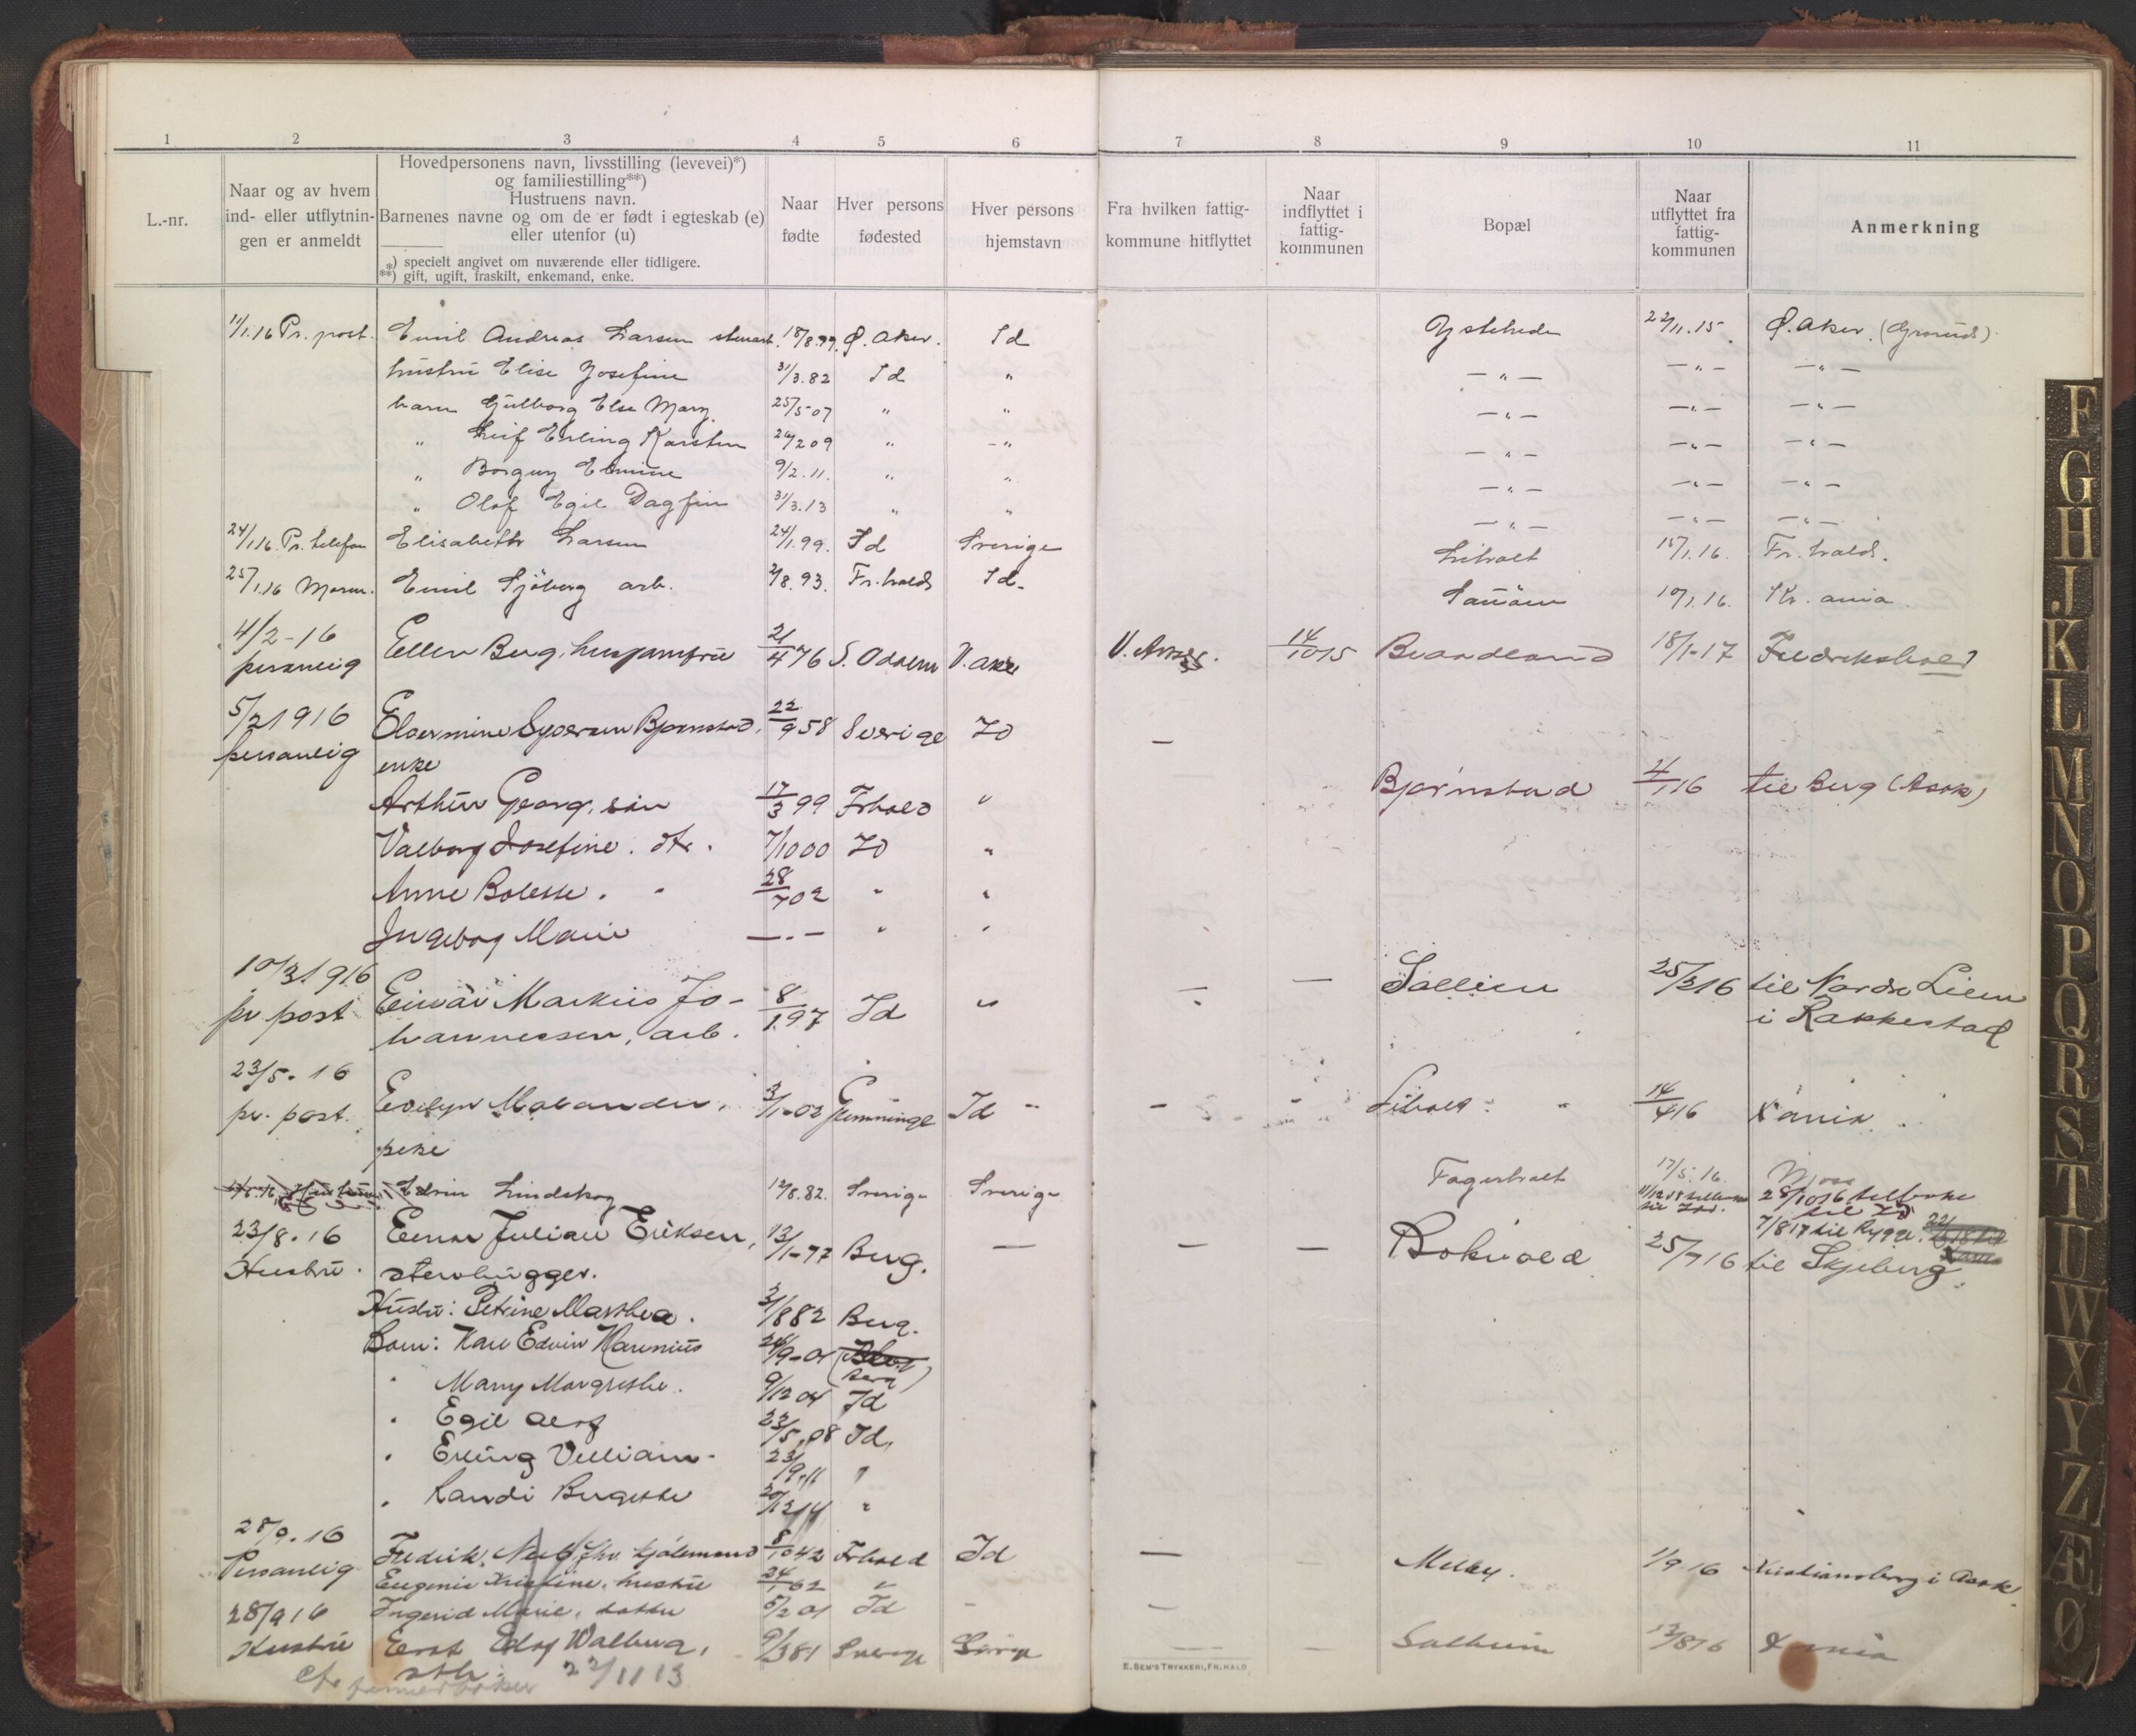 1 2 3 4 5 6 7 8 9 10 11
L.-nr.
Naar og av hvem
ind- eller utflytnin-
gen er anmeldt
Hovedpersonens navn, livsstilling (levevei)*)
og familiestilling**)
Hustruens navn.
Barnenes navne og om de er født i egteskab (e)
eller utenfor (u)
*) specielt angivet om nuværende eller tidligere.
**) gift, ugift, fraskilt, enkemand, enke.
Naar
fødte
Hver persons
fødested
Hver persons
hjemstavn
Fra hvilken fattig-
kommune hitflyttet
Naar
indflyttet i
fattig-
kommunen
Bopæl
Naar
utflyttet fra
fattig-
kommunen
Anmerkning
11/1.16 Pr. post. Emil Andreas Larsen stenarb. 18/8.79. Ø. Aker. Id Ystehede 22/11.15. Ø. Aker. (Grorud)
hustru Elise Josefine 31/3.82 Id " — " — — " — — " —
barn Gulborg Else Mary. 25/5 07 " " — " — — " — — " —
" Leif Erling Karsten 26/2 09 " " — " — — " — — " —
" Borguy Elmine 9/2.11. " " — " — — " — — " —
" Olaf Egil Dagfin 31/3.13 " " — " — — " — — " —
24/1.16. Pr. telefon Elisabeth Larsen 24/1.99. Id Sverige Liholt 15/1.16. Fr.hald.
25/1.16 Moren. Emil Sjöberg arb. 2/8.93. Fr.hald Id. 10/1.16. Kr.ania.
4/2-16 Ellen Berg, husjomfru 21/4 76 S. Odalen V. Aker V. Aker. 14/10 15 18/1-17 Fredrikshald
personlig
5/2 1916 Bjørnstad, 22/9 58 Sverige Id —
personlig enke
Arthur Georg, søn 17/3 99 Frhald " Bjørnstad 4/1 16 til Berg (Asak)
Valborg Josefine. dtr. 7/10 00 Id "
Anne Bolette. " 28/7 02 " "
Ingeborg Marie — . — " "
10/3 1916 Einar Markus Jo- 8/1.97 Id " — — Sollien 25/3 16 til Nordre Lien
pr post hannessen, arb. i Rakkestad
23/5.16
pr. post. Evelyn 3/1-02 Id " — " " 14/4 16 Kania.
pike
Edvin Lindskog 12/8.82. Sverige Sverige Fagerholt 17/5.16. Moss
28/10 16 tilbake
til Id
7/8 17 til Rygge.
23/8.16 Einar Julian Eriksen, 13/1-77 Berg. — — — Bokvold 25/7 16 til Skjeberg.
Hustru. stenhugger.
Hustru: Petrine Marthea. 31/8 82 Berg.
Barn: Karl Edvin Harmius 24/9-01 (Berg)
" Marry Margrethe. 9/12 04 Id
" Egil Alof 22/5.08 Id.
" Erling Villiam. 23/9.11 "
" Randi Birgitte 20/12 14 "
28/9.16
Personlig Fredrik, 8/10 42 Frhald Id — Melby. 1/9 16 Kristiansberg i Asak.
Eugenie Kristine, hustru 24/1 62 "
28/9 16 Ingerid Marie, datter 5/2 01 Id — —
Hustru Walberg, 9/3 81 Sverige Sverige — — Solheim 12/8 16 Kania
sth.
22/11 13
E. SEM'S TRYKKERI, FR.HALD
F
G
H
J
K
L
M
N
O
P
Q
R
S
T
U
W
X
Y
Z
Æ
Ø